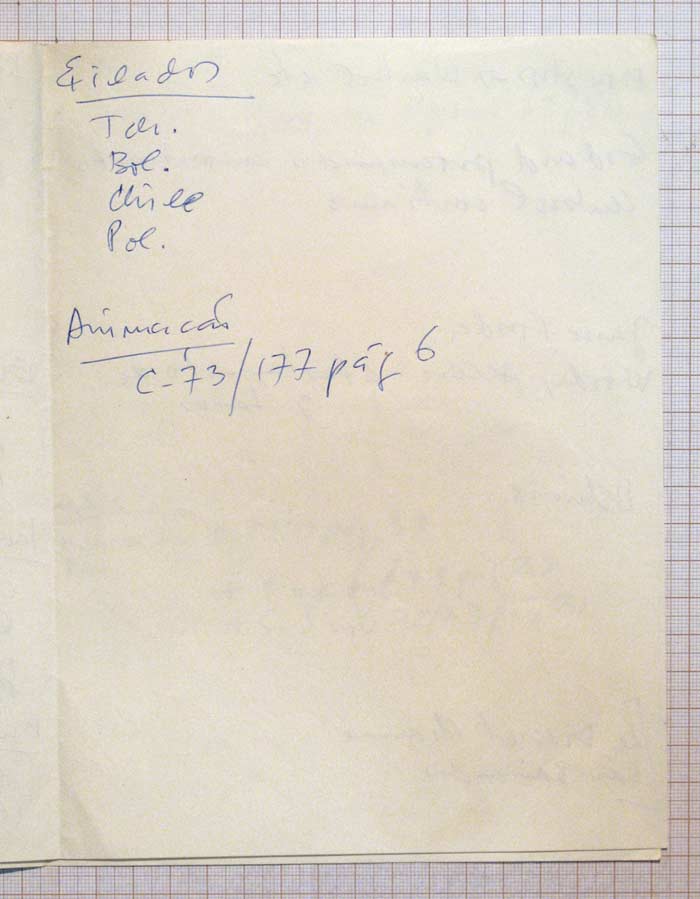 Exilados
Tch.
Bol.
Chile
Pol.
Animação
C-73/177 pág 6